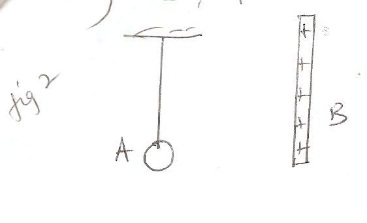 fig 2
A
+
+
+
+
+
B